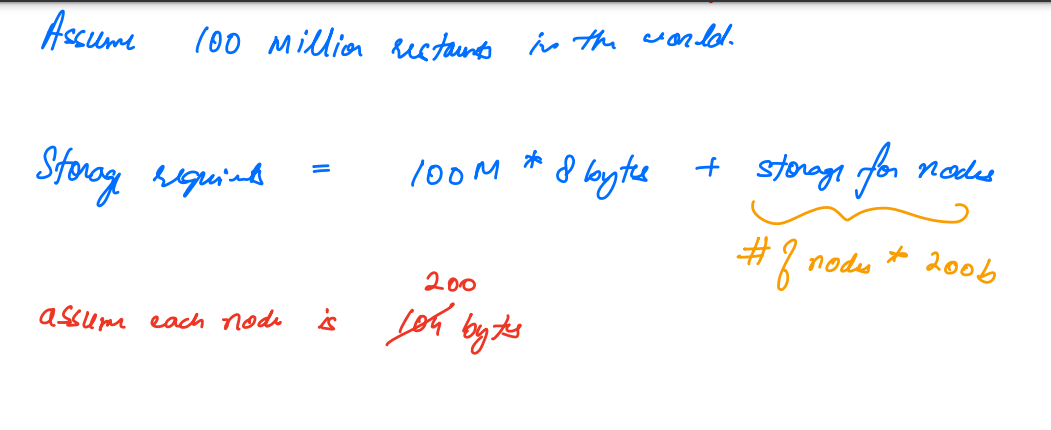 Assume 100 Million restaurants in the world.
Storage requirements = 100M * 8 bytes + storage for nodes
# of nodes * 200b
200
assume each node is 104 bytes